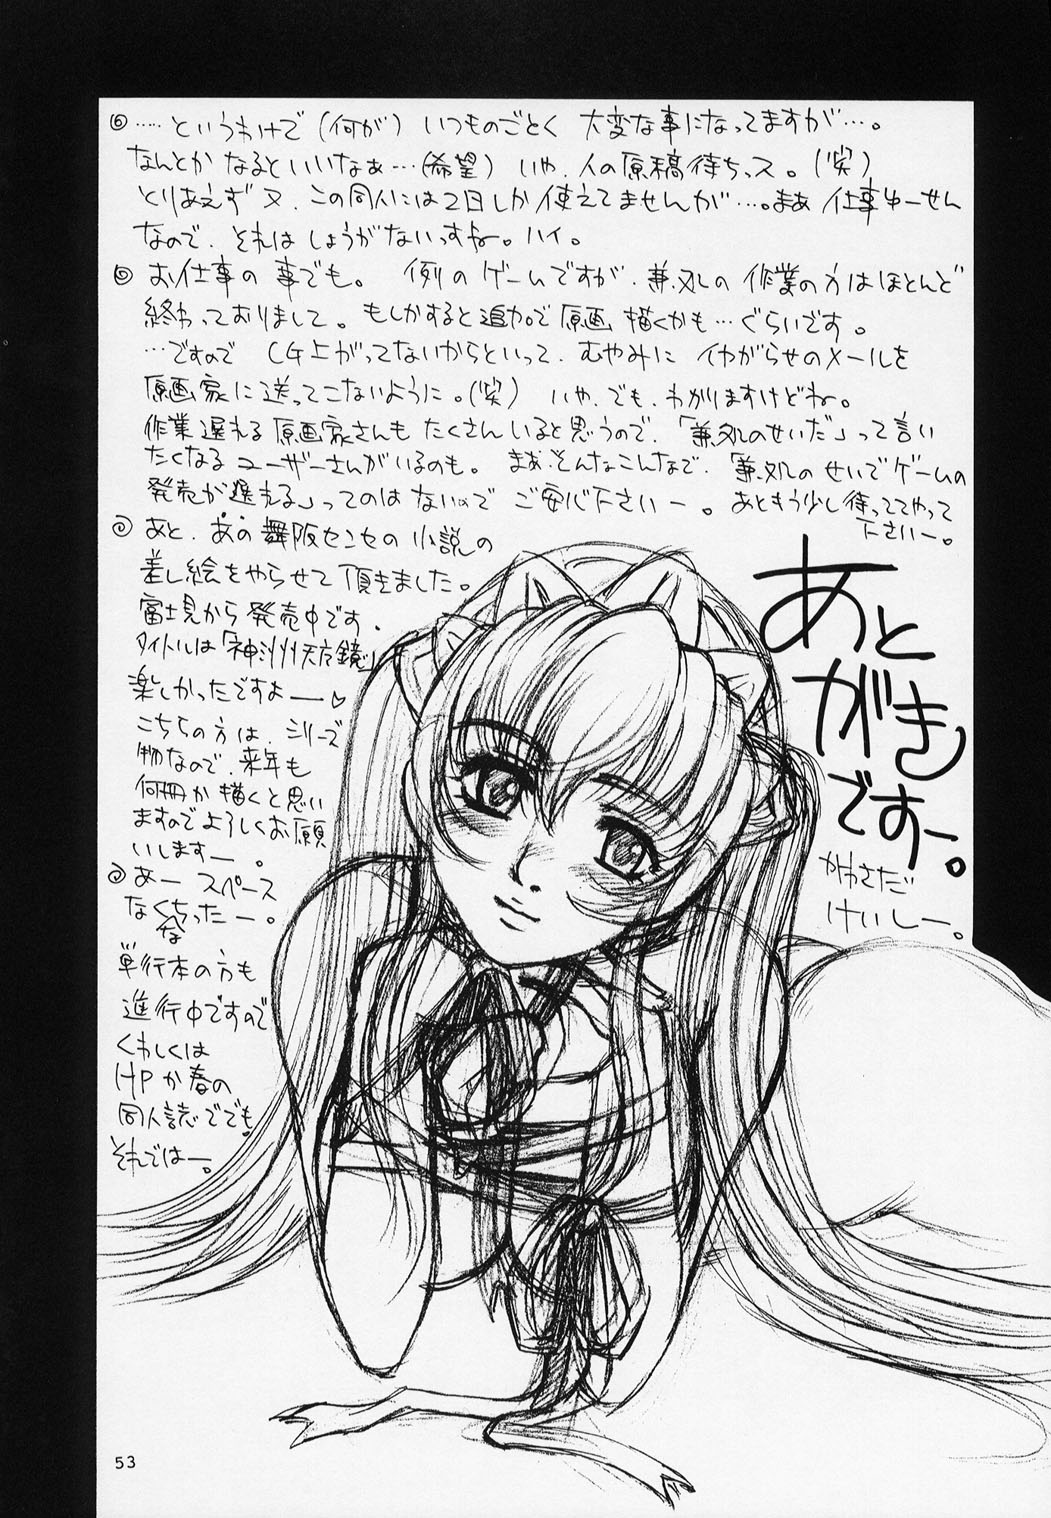 ……というわけで(何が)いつものごとく 大変な事になってますが…。
なんとか なるといいなぁ…(希望) いや、人の原稿待ちっス。(笑)
とりあえず又、この同人には2日しか使えてませんが…。まあ仕事ゆーせん
なので、それはしょうがないっすねー。ハイ。
お仕事の事でも。 例のゲームですが、兼処の作業の方はほとんど
終わっておりまして。もしかすると追加で原画描くかも…ぐらいです。
…ですので CG上がってないからといって、むやみに イヤがらせのメールを
原画家に送ってこないように。(笑) いや、でも、わかりますけどねー。
作業遅れる原画家さんも たくさんいると思うので、「兼処のせいだ」って言い
たくなるユーザーさんがいるのも。 まあ、そんなこんなで、「兼処のせいでゲームの
発売が遅れる」ってのはないのでご安心下さいー。あともう少し待っててやって
下さいー。
あと、あの舞阪センセの小説の
差し絵をやらせて頂きました。
富士見から発売中です。
タイトルは「神州天応鏡」
楽しかったですよー♡
こちらの方は、シリーズ
物なので、来年も
何冊か描くと思い
ますのでよろしくお願
いしますー。
あー スペース
なくなっちったー。
単行本の方も
進行中ですので
くわしくは
HPか春の
同人誌ででも
それではー。
あと
がき
ですー。
かわさだ
けいしー。
53